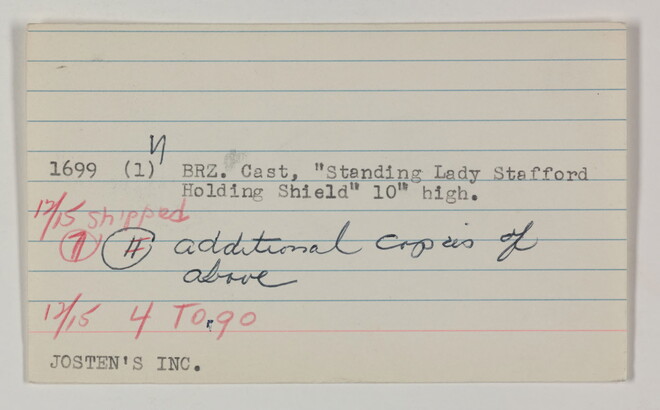 1699 (1) BRZ. Cast, "Standing Lady Stafford
Holding Shield" 10" high.
12/15 shipped
1 4 additional copies of
above
12/15 4 To go
JOSTEN'S INC.